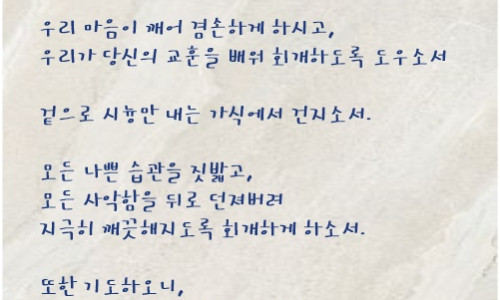 우리 마음이 깨어 겸손하게 하시고,
우리가 당신의 교훈을 배워 회개하도록 도우소서
겉으로 시늉만 내는 가식에서 건지소서.
모든 나쁜 습관을 짓밟고,
모든 사악함을 뒤로 던져버려
지극히 깨끗해지도록 회개하게 하소서.
또한 기도하오니,